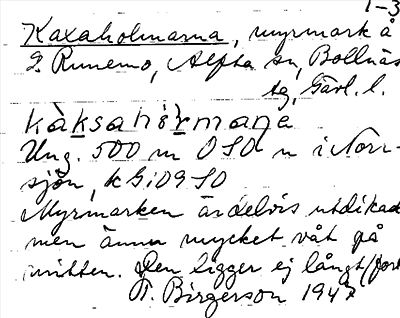 1-3
Kaxaholmarna, myrmark å
S. Runemo, Alfta sn, Bollnäs
tg, Gävl. l.
kàksahòrmana
Ung. 500 m OSO n i Norr-
sjön, k G:09 SO
Myrmarken är delvis utdikad
men ännu mycket våt på
mitten. Den ligger ej långt
T. Birgerson 1947